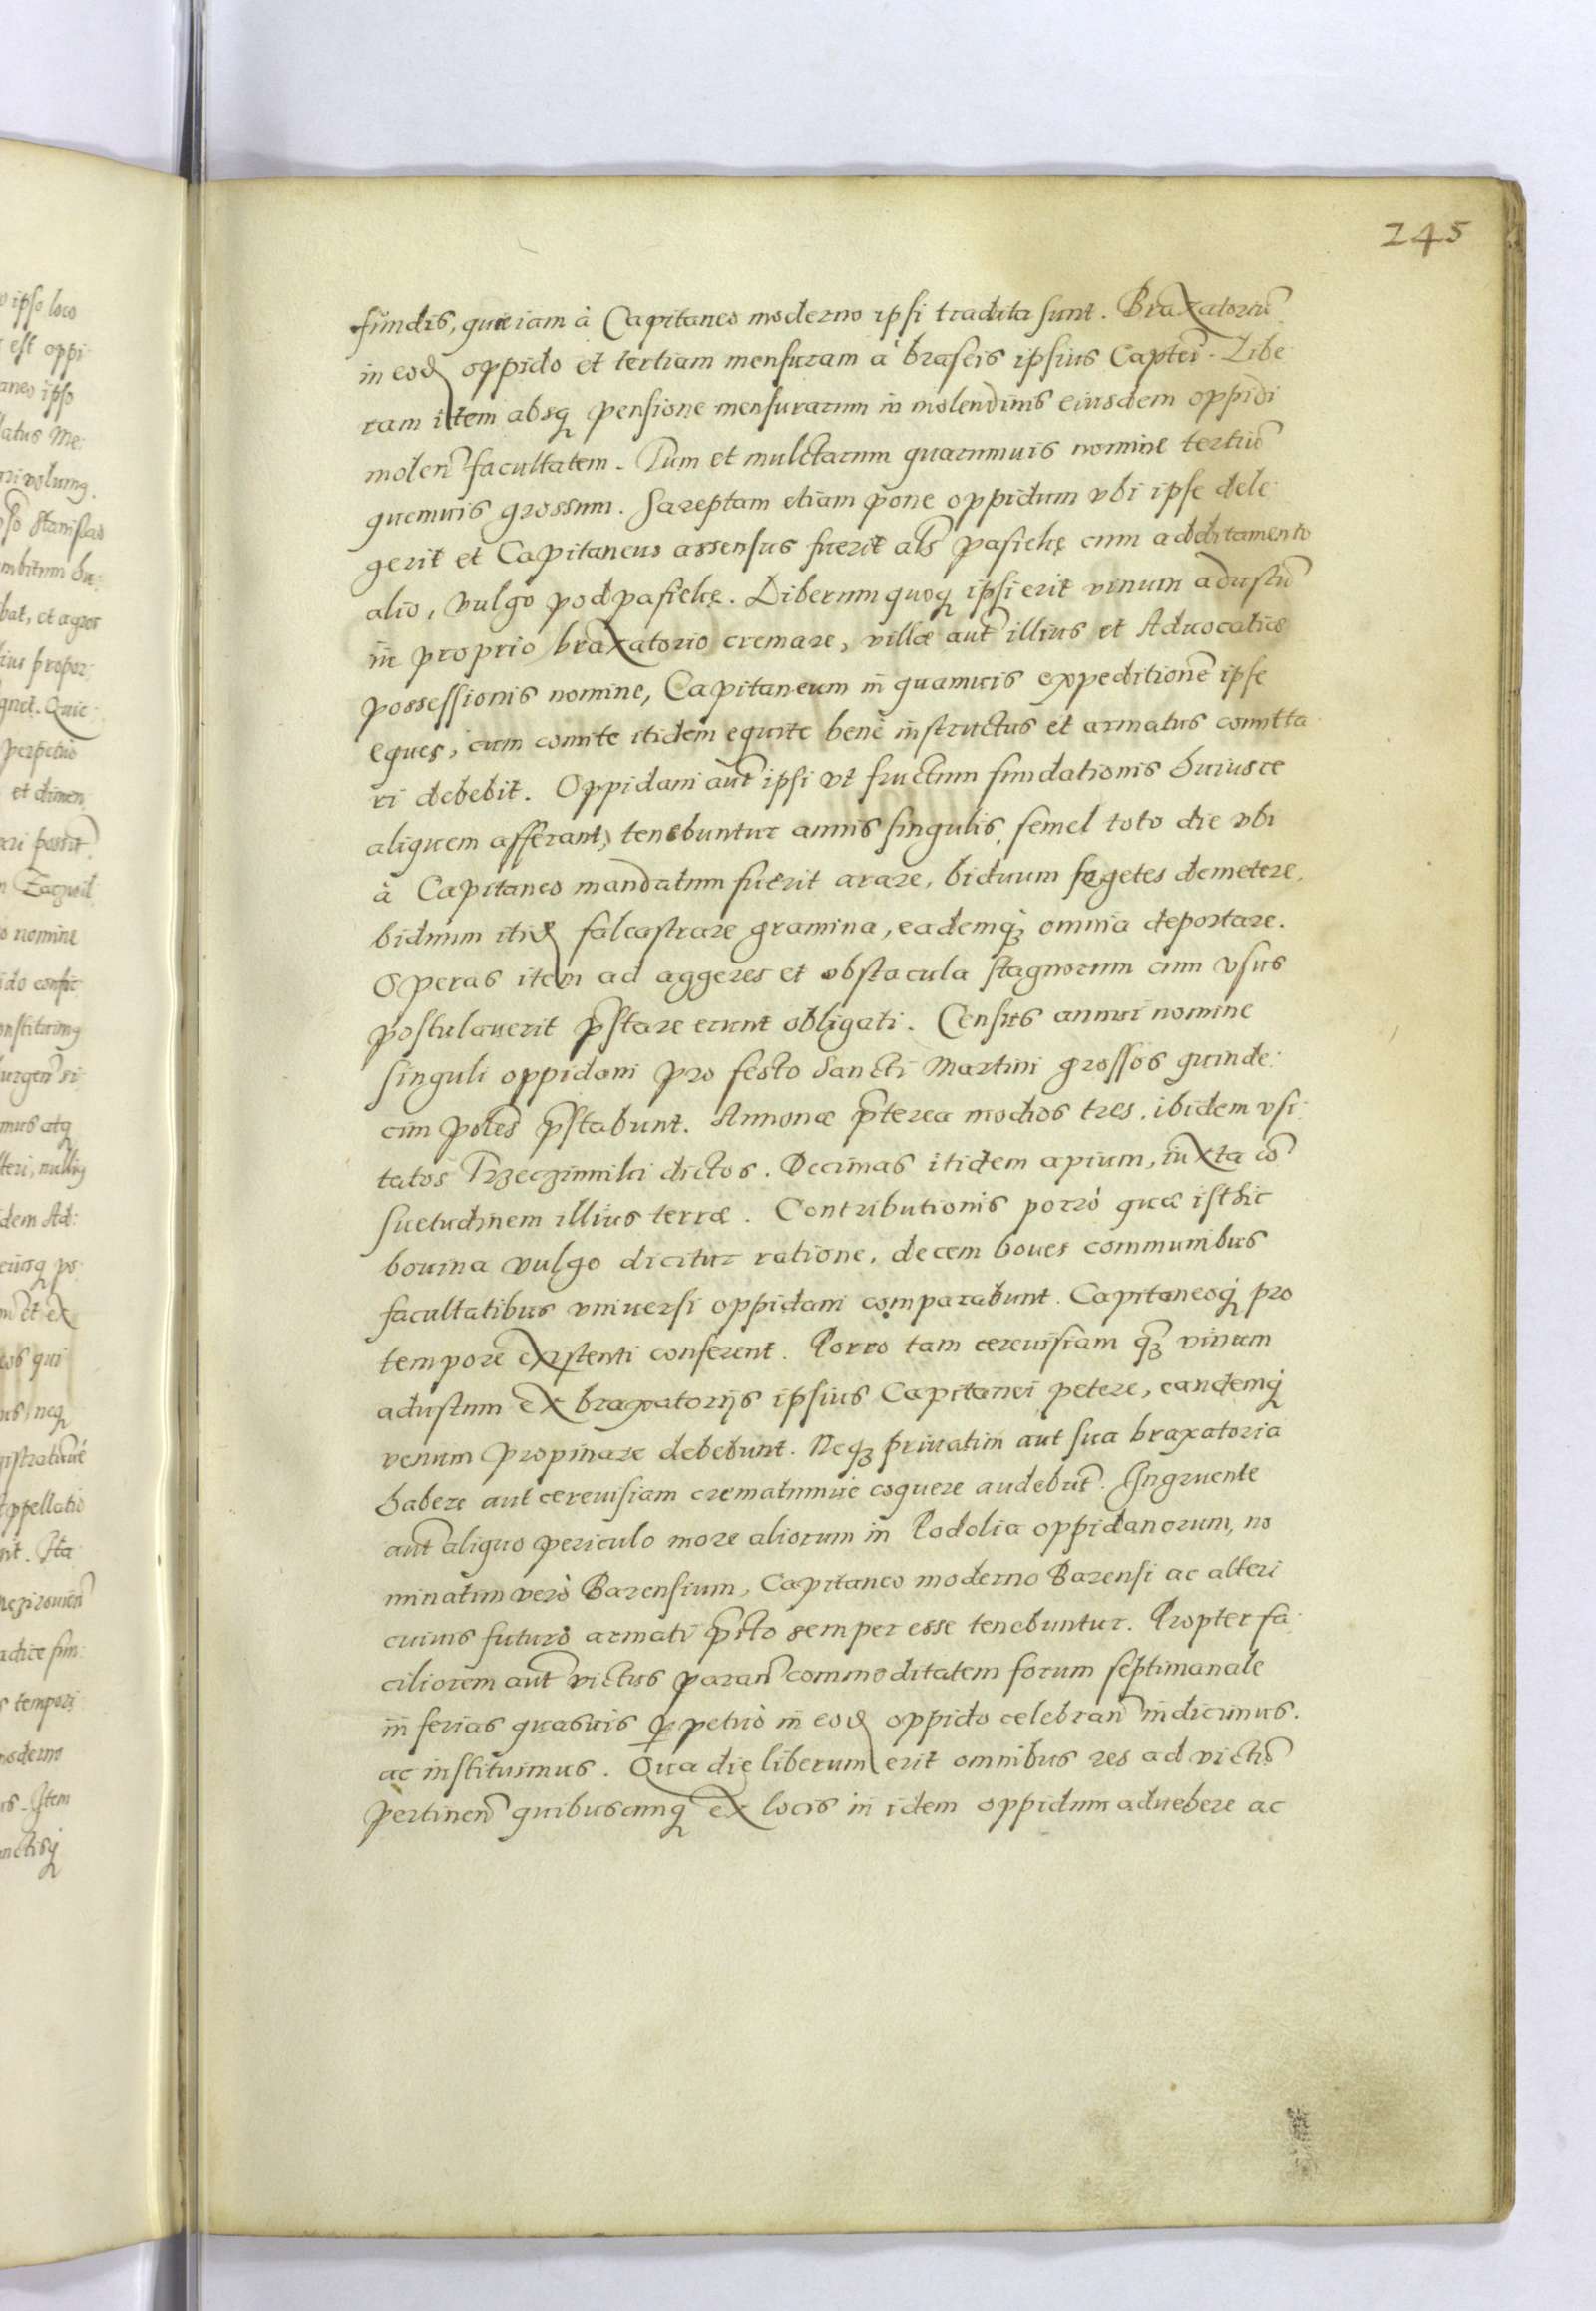 245
fundis, quæ iam à Capitaneo moderno ipsi tradita sunt. Braxatoriũ
in eod oppido et tertiam mensuram a braseis ipsius Captei. Libe
ram item absq pensione mensurarum in molendinis eiusdem oppidi
molen̄ facultatem. Tum et mulctarum quarumuis nomine tertiũ
quemuis grossum. Sareptam etiam pone oppidum vbi ipse dele
gerit et Capitaneus assensus fuerit als pasiekę cum additamento
alio, vulgo podpasiekę. Liberum quoq ipsi erit vinum adustũ
in proprio braxatorio cremare, villæ aut̃ illius et Aduocatiæ
possessionis nomine, Capitaneum in quamuis expeditionẽ ipse
eques, cum comite itidem equite benè instructus et armatus comitta
ri debebit. Oppidani aut̃ ipsi vt fructum fundationis huiusce
aliquem afferant, tenebuntur annis singulis, semel toto die vbi
à Capitaneo mandatum fuerit arare, biduum segetes demetere,
biduum itid falcastrare gramina, eademq; omnia deportare.
Operas item ad aggeres et obstacula stagnorum cum vsus
postulauerit p̃stare erunt obligati. Census annui nomine
singuli oppidani pro festo Sancti Martini grossos quinde:
cim poles p̃stabunt. Annonæ p̃terea modios tres, ibidem vsi:
tatos Trzeczinniki dictos. Decimas itidem apium, iuxta cõ
suetudinem illius terræ. Contributionis porrò quæ isthic
bouina vulgo dicitur ratione, decem boues communibus
facultatibus vniuersi oppidani comparabunt. Capitaneoq; pro
tempore existenti conferent. Porro tam cereuisiam q̃; vinum
adustum ex braxatorijs ipsius Capitanei petere, eandemq;
venum propinare debebunt. Neq; priuatim aut sua braxatoria
habere aut cereuisiam crematumue coquere audebũt. Ingruente
aut̃ aliquo periculo more aliorum in Podolia oppidanorum, no
minatim verò Barensium, Capitaneo moderno Barensi ac alteri
cuiuis futuro armati p̃sto semper esse tenebuntur. Propter fa:
ciliorem aut̃ victus paran̄ commoditatem forum septimanale
in ferias quasuis perpetuò in eod oppido celebran̄ indicimus.
ac instituimus. Qua die liberum erit omnibus res ad victũ
pertinen̄ quibuscunq ex locis in idem oppidum aduehere ac